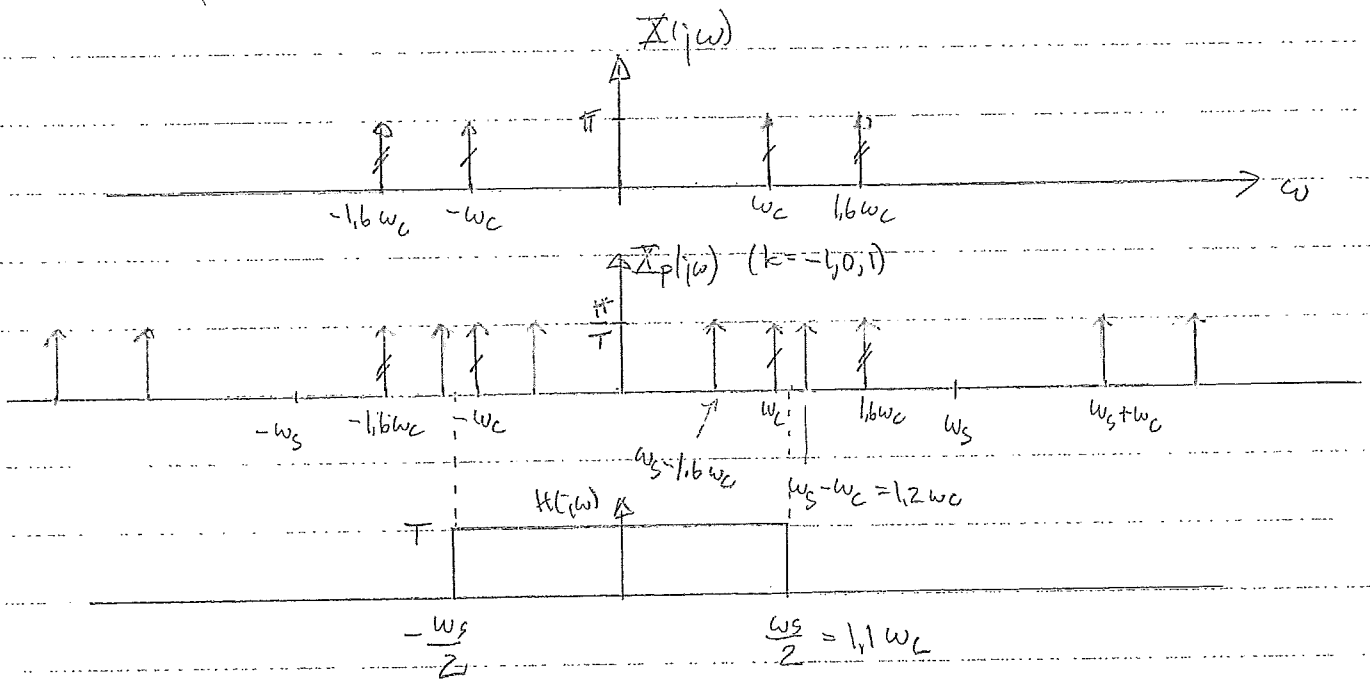 X(jω)
π
-1,6ωc -ωc ωc 1,6ωc ω
Xp(jω) (k=-1,0,1)
π/T
-ωs -1,6ωc -ωc ωc 1,6ωc ωs ωs+ωc
ωs-1,6ωc
ωs-ωc = 1,2ωc
H(jω)
T
-ωs/2 ωs/2 = 1,1ωc